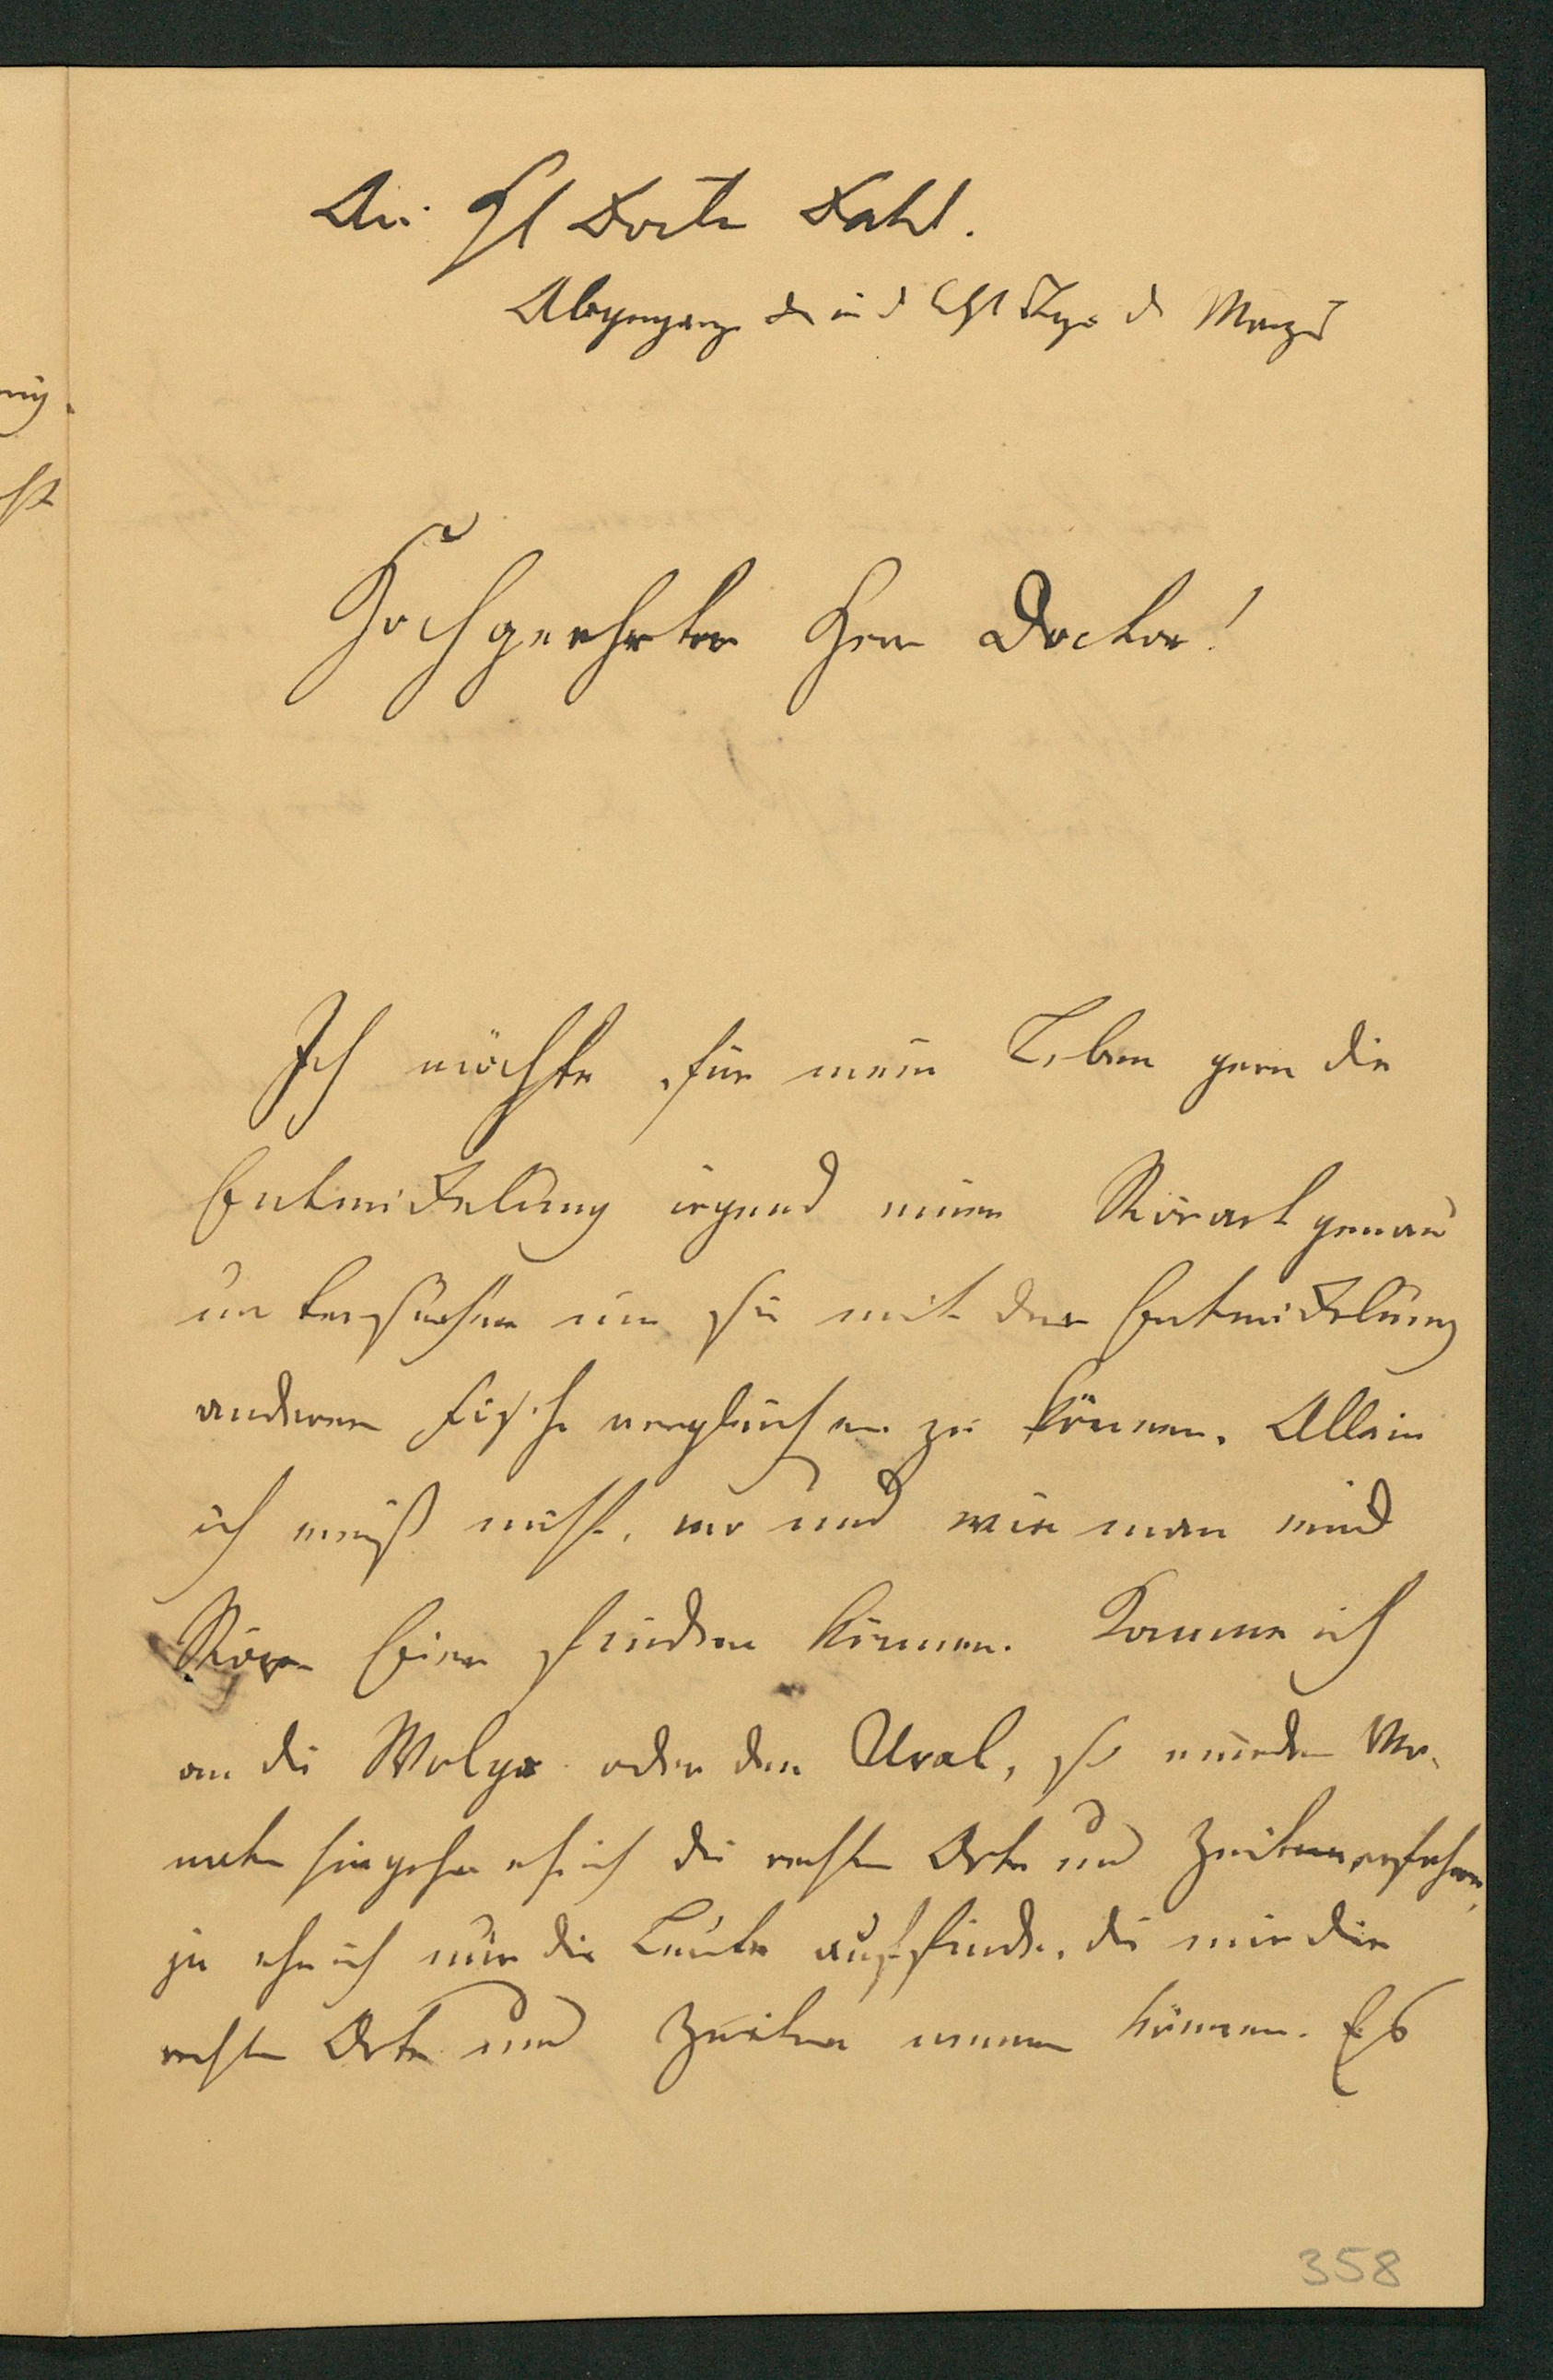 An H. Doctor Dahl.
Abgegangen d in d letzt Tagen d März
Hochgeehrter Herr Doctor!
Ich möchte für mein Leben gern die
Entwickelung irgend einer Störart genau
untersuchen um sie mit der Entwickelung
anderer Fische vergleichen zu können. Allein
ich weiß nicht, wo und wie man wird
Stör Eier finden können. Komme ich
an die Wolga oder den Ural, so würden Mo-
nate hingehen eh ich die rechten Orte und Zeiten erfahre,
ja ehe ich nur die Leute auffinde, die mir die
rechten Orte und Zeiten nennen können. Es
358